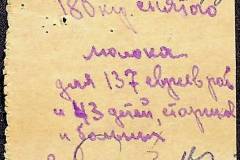 180 кгр. снятого
молока
для 137 евреев раб
и 43 детей, стариков
и больных